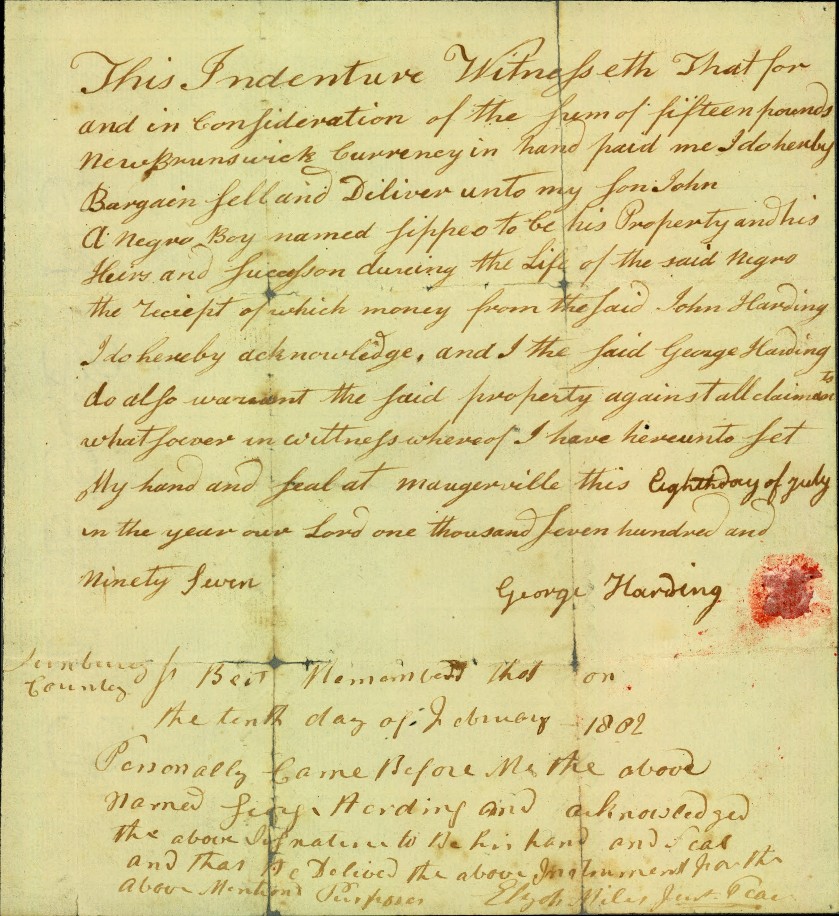 This Indenture Witnesseth That for
and in Consideration of the sum of fifteen pounds
New Brunswick Currency in hand paid me I do herby
Bargain sell and Diliver unto my son John
A Negro Boy named Sippeo to be his Property and his
Heirs and Successon dureing the Life of the said Negro
the reciept of which money from the said John Harding
I do hereby acknowledge, and I the said George Harding
do also warrant the said property against all claimants
whatsoever in wittness whereof I have hereunto set
My hand and seal at Maugerville this Eighth day of July
in the year our Lord one thousand seven hundred and
Ninety Seven
George Harding
Sunbury
County
ss Be it Remembred that on
the tenth day of February 1802
Personally Came Before Me the above
Named George Harding and acknowledged
the above Signature to Be his hand and Seal
and that He Delived the above Instrument for the
above Mentiond Purposes
Elijah Miles Just Peac